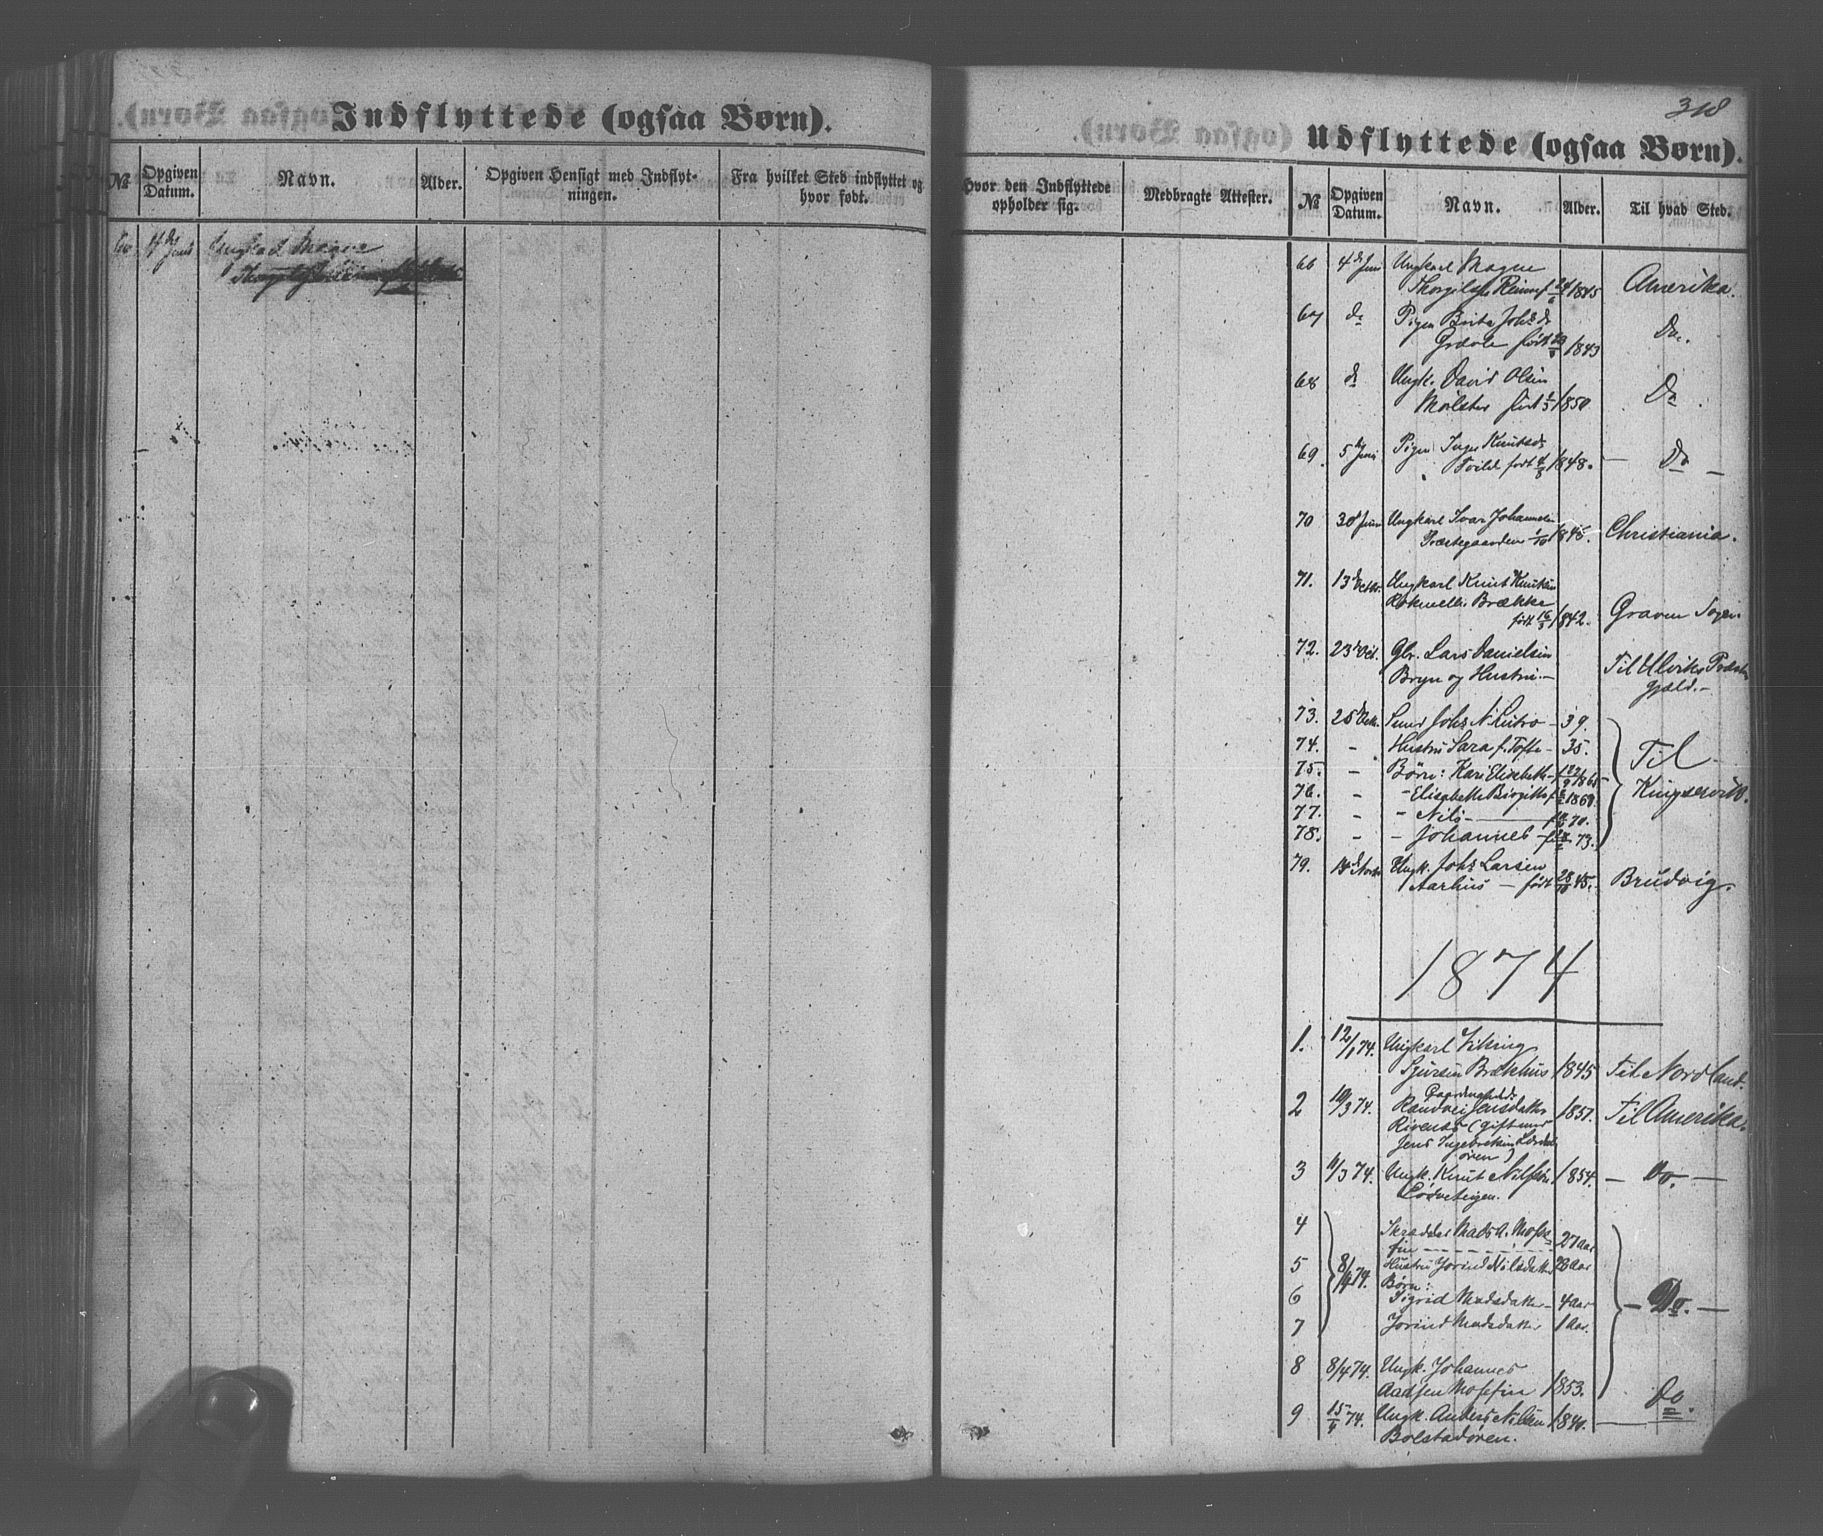 Indflyttede (ogsaa Børn).
№
Opgiven Datum.
Navn.
Alder.
Opgiven Hensigt med Indflytningen.
Fra hvilket Sted indflyttet og hvor født.
4 Juni Ungkarl Magne
318
Udflyttede (ogsaa Børn).
Hvor den Indflyttede opholder sig.
Medbragte Attester.
№
Opgiven Datum.
Navn.
Alder.
Til hvad Sted.
66 4 Juni Ungkarl Magne
Thorgilss. f. 24/6 1845 Amerika.
67 do Pigen Brita Johsd.
født 1843 Do.
68 d Ungk. David Olsen
Mølster født 1850 Do
69. 5 Juni Pigen Inger Knutsd.
Tvild født 1848. Do
70 30 Juni Ungkarl Ivar Johannesen
Præstegaarden /10 1845. Christiania.
71. 13 Octbr. Ungkarl Knut Knutsen
Rokne eller Brække
født 16/3 1842. Graven Sogn
72. 23 Oct. Gbr. Lars Danielsen
Bryn og Hustru. Til Ulviks Præste
gjæld.
73. 25 Oct. Smed Johs N. Lutro 39.
74. - Hustru Sara f. Tofte - 35.
75. - Børn: Kari Elisabeth - f. 22/9 1865 Til
76. - - Elisabeth Birgitte f. 1868 Kingservik.
77. - - Nils f. 70.
78. - - Johannes - f. 73.
79. 14 Novbr Ungk. Johs Larsen
Aarhus - født 28/10 45. Brudvig.
1874
1. 12/1 74. Ungkarl Viking
Sjursen Brækhus 1845 Til Nordland.
2 10/3 74. Gaardmandsd.
Randvei Jensdatter 1857. Til Amerika.
(gift med
Jens Ingebretsen Lærdals
øren)
3 11/3 74. Ungk. Knut Nilssen 1854. - Do. -
4 Skrædder Mads A. Mossefin 27 Aar
5 8/4 74. Hustru Jorind Nilsdatter 28 Aar
Børn:
6 Sigrid Madsdatter - 4 Aar - Do. -
7 Jorind Madsdatter 1 Aar.
8 8/4 74. Ungk. Johannes
Aadsen Mossefin 1853.
9 15/4 74. Ungk. Anders Nilsen 1840. Do.
Bolstadøren.